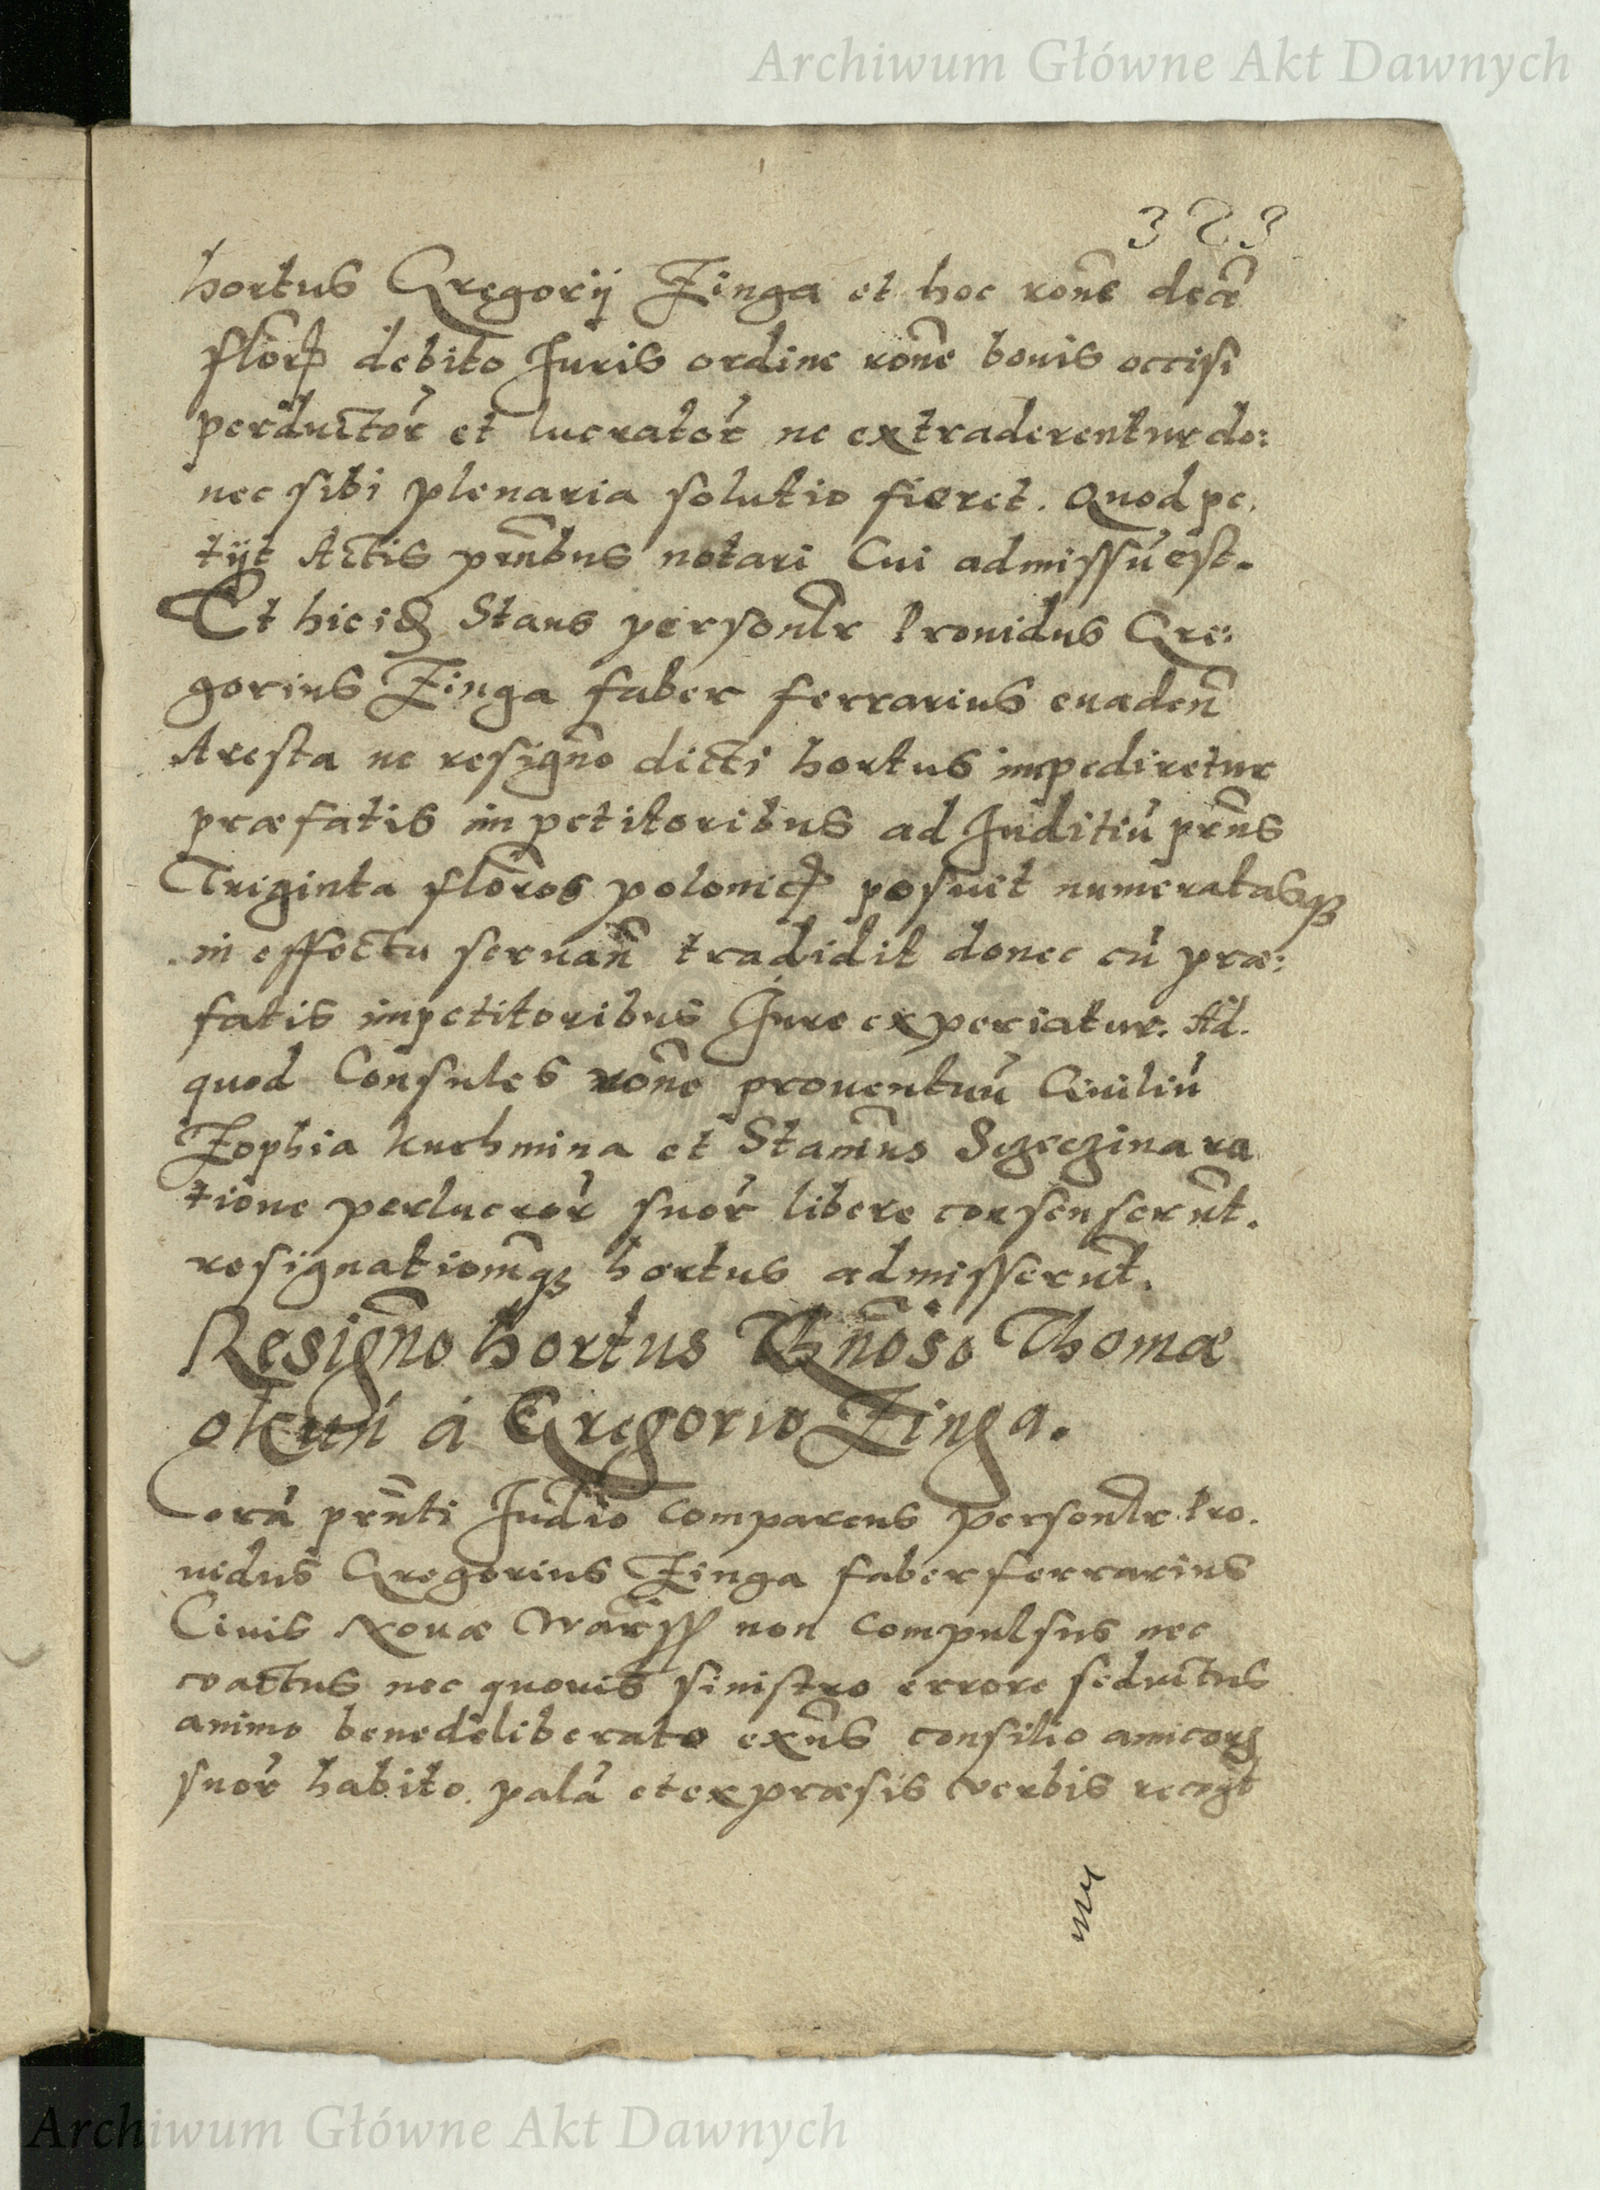 Archiwum Główne Akt Dawnych
323
hortus Gregorij Zinga et hoc rōne decē
flōr debito Juris ordine rōne bouis occisi
perductor̄ et lucrator̄ ne extraderentur do:
nec sibi plenaria solutio fieret. Quod pe.
tijt Actis prn̄bus notari Cui admissū est.
Et hic Stans personlr Prouidus Gre:
gorius Zinga faber ferrarius euaden̄
Aresta ne resign̄o dicti hortus impediretur
præfatis impetitoribus ad Juditiū prn̄s
Triginta flōros polonic posuit numeratasq3
in effectu seruan̄ tradidit donec cū præ:
fatis impetitoribus Jure experiatur. Ad.
quod Consules rōne prouentuū Ciuiliū
Zophia Kuchmina et Stamn̄s ra
tione perlucror̄ suor̄ libere consenserūt.
resignationēq3 hortus admisserūt.
Resign̄o hortus Gn̄oso Thomæ
okuń á Gregorio Zinga.
Corā prn̄ti Judio comparens personlr Pro.
uidus Gregorius Zinga faber ferrarius
Ciuis Nouæ Warss non compulsus nec
coactus nec quouis sinistro errore seductus
animo bene deliberato exn̄s consilio amicorꝝ
suor̄ habito palā et expræsis verbis recogt
Archiwum Główne Akt Dawnych